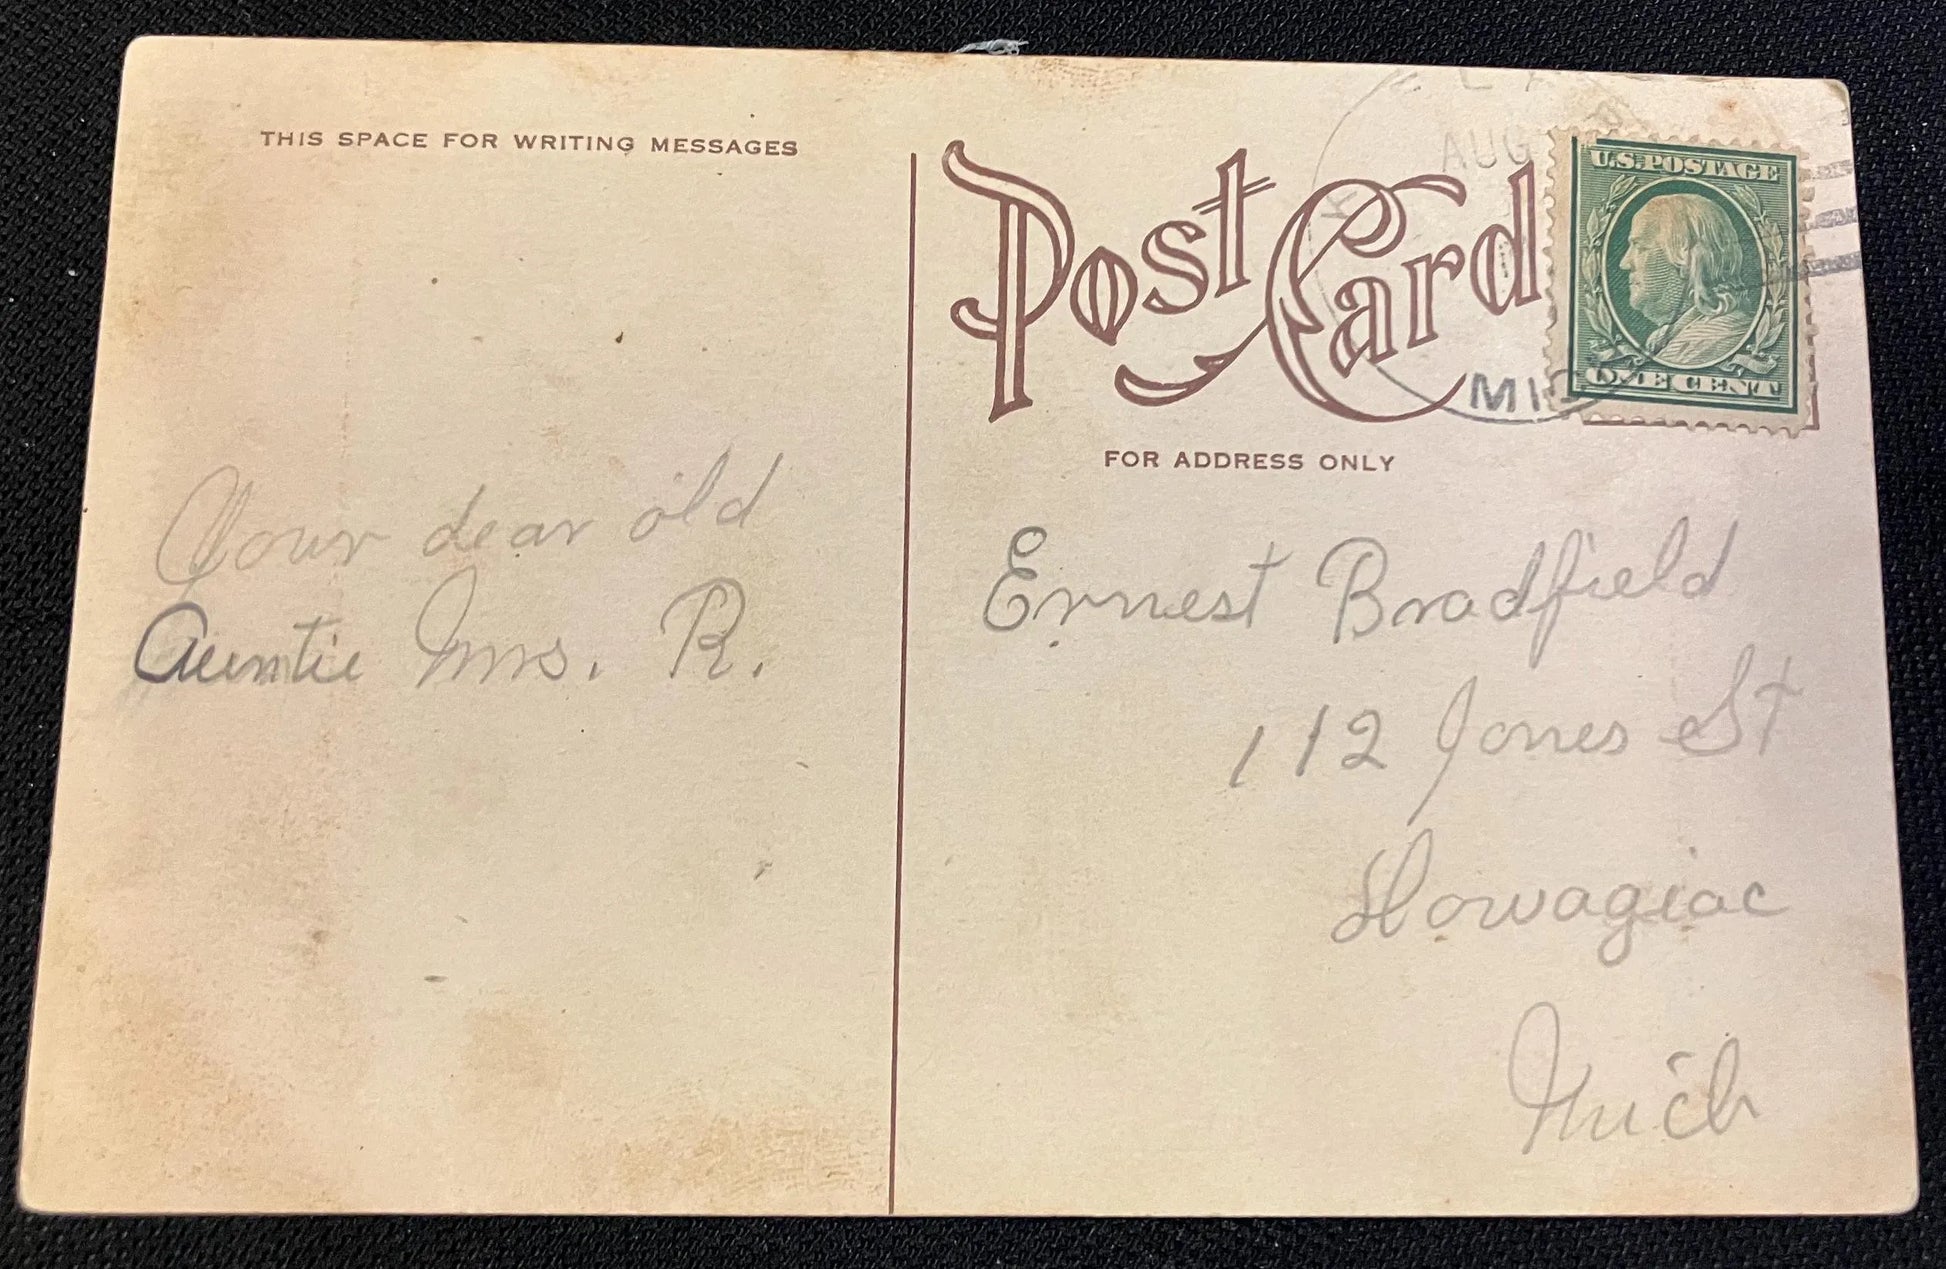 THIS SPACE FOR WRITING MESSAGES
Your dear old
Auntie Mrs. R.
Post Card
AUG
MICH
U.S. POSTAGE
ONE CENT
FOR ADDRESS ONLY
Ernest Bradfield
112 Jones St
Dowagiac
Mich